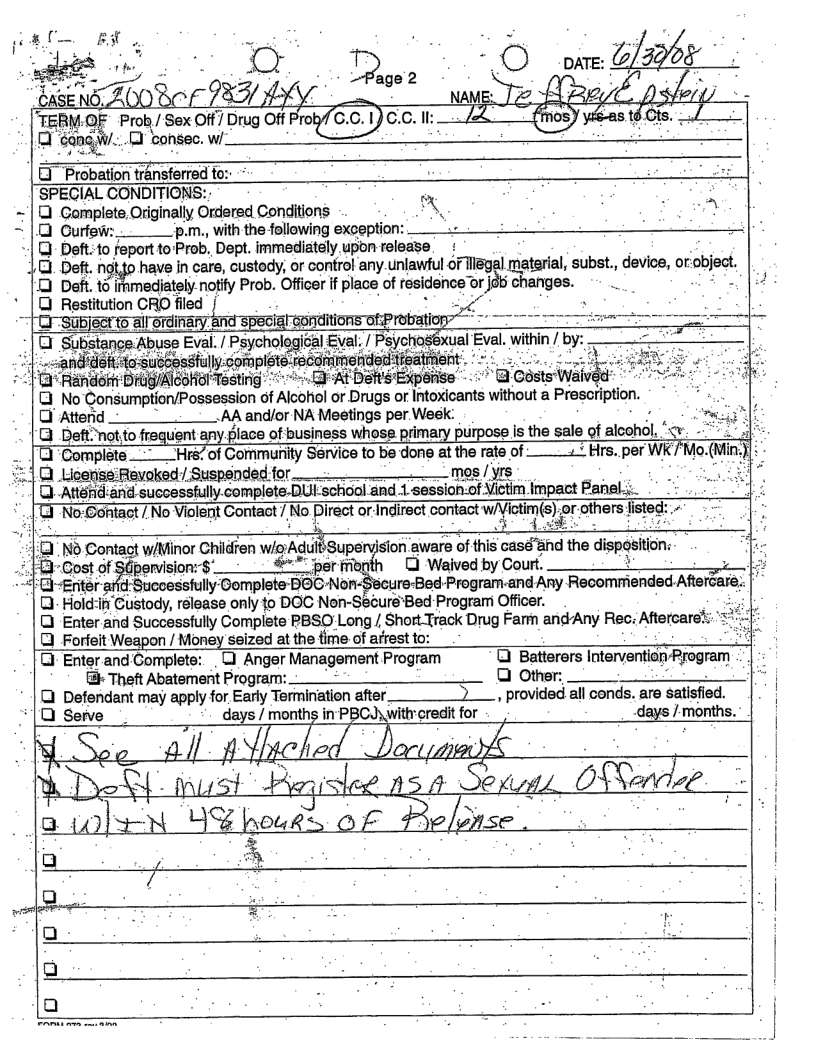 DATE: 6/30/08
Page 2
CASE NO. 2008CF9831AXY NAME: Jeffrey Epstein
TERM OF Prob / Sex Off / Drug Off Prob / C.C. I / C.C. II: 12 mos / yrs as to Cts. 1
❑ conc w/ ❑ consec. w/
❑ Probation transferred to:
SPECIAL CONDITIONS:
❑ Complete Originally Ordered Conditions
❑ Curfew: p.m., with the following exception:
❑ Deft. to report to Prob. Dept. immediately upon release
❑ Deft. not to have in care, custody, or control any unlawful or illegal material, subst., device, or object.
❑ Deft. to immediately notify Prob. Officer if place of residence or job changes.
❑ Restitution CRO filed
❑ Subject to all ordinary and special conditions of Probation
❑ Substance Abuse Eval. / Psychological Eval. / Psychosexual Eval. within / by:
and deft. to successfully complete recommended treatment
❑ Random Drug/Alcohol Testing ❑ At Deft's Expense ❑ Costs Waived
❑ No Consumption/Possession of Alcohol or Drugs or Intoxicants without a Prescription.
❑ Attend AA and/or NA Meetings per Week.
❑ Deft. not to frequent any place of business whose primary purpose is the sale of alcohol.
❑ Complete Hrs. of Community Service to be done at the rate of Hrs. per Wk / Mo.(Min.)
❑ License Revoked / Suspended for mos / yrs
❑ Attend and successfully complete DUI school and 1 session of Victim Impact Panel
❑ No Contact / No Violent Contact / No Direct or Indirect contact w/Victim(s) or others listed:
❑ No Contact w/Minor Children w/o Adult Supervision aware of this case and the disposition.
❑ Cost of Supervision: $ per month ❑ Waived by Court.
❑ Enter and Successfully Complete DOC Non-Secure Bed Program and Any Recommended Aftercare.
❑ Hold in Custody, release only to DOC Non-Secure Bed Program Officer.
❑ Enter and Successfully Complete PBSO Long / Short Track Drug Farm and Any Rec. Aftercare.
❑ Forfeit Weapon / Money seized at the time of arrest to:
❑ Enter and Complete: ❑ Anger Management Program ❑ Batterers Intervention Program
❑ Theft Abatement Program: ❑ Other:
❑ Defendant may apply for Early Termination after , provided all conds. are satisfied.
❑ Serve days / months in PBCJ, with credit for days / months.
See All Attached Documents
Deft must Register AS A Sexual Offender
❑ W/IN 48 hours OF Release.
❑
❑
❑
❑
❑